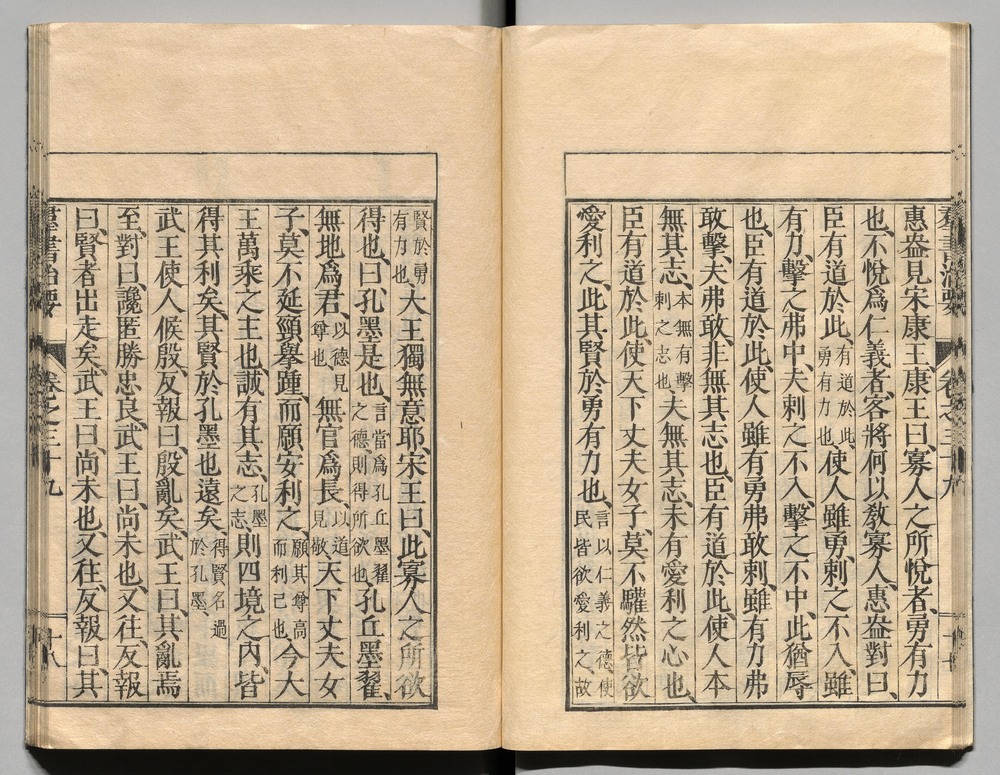 惠盎見宋康王、康王曰、寡人之所悅者、勇有力
也、不悅爲仁義者、客將何以敎寡人、惠盎對曰、
臣有道於此、有道於此、勇有力也、使人雖勇、刺之不入、雖
有力、擊之弗中、夫刺之不入、擊之不中、此猶辱
也、臣有道於此、使人雖有勇弗敢刺、雖有力弗
敢擊、夫弗敢、非無其志也、臣有道於此、使人本
無其志、本無有擊刺之志也、夫無其志、未有愛利之心也、
臣有道於此、使天下丈夫女子、莫不驩然皆欲
愛利之、此其賢於勇有力也、言以仁義之德使民皆欲愛利之、故
賢於勇有力也、大王獨無意耶、宋王曰、此寡人之所欲
得也、曰、孔墨是也、言當爲孔丘墨翟之德、則得所欲也、孔丘墨翟、
無地爲君、以德見尊也、無官爲長、以道見敬、天下丈夫女
子、莫不延頸擧踵、而願安利之、願其尊高而利己也、今大
王萬乘之主也、誠有其志、孔墨之志、則四境之內、皆
得其利矣、其賢於孔墨也遠矣、得賢名過於孔墨、
武王使人候殷、反報曰、殷亂矣、武王曰、其亂焉
至、對曰、讒匿勝忠良、武王曰、尚未也、又往、反報
曰、賢者出走矣、武王曰、尚未也、又往、反報曰、其
羣書治要
卷之三十九
十八